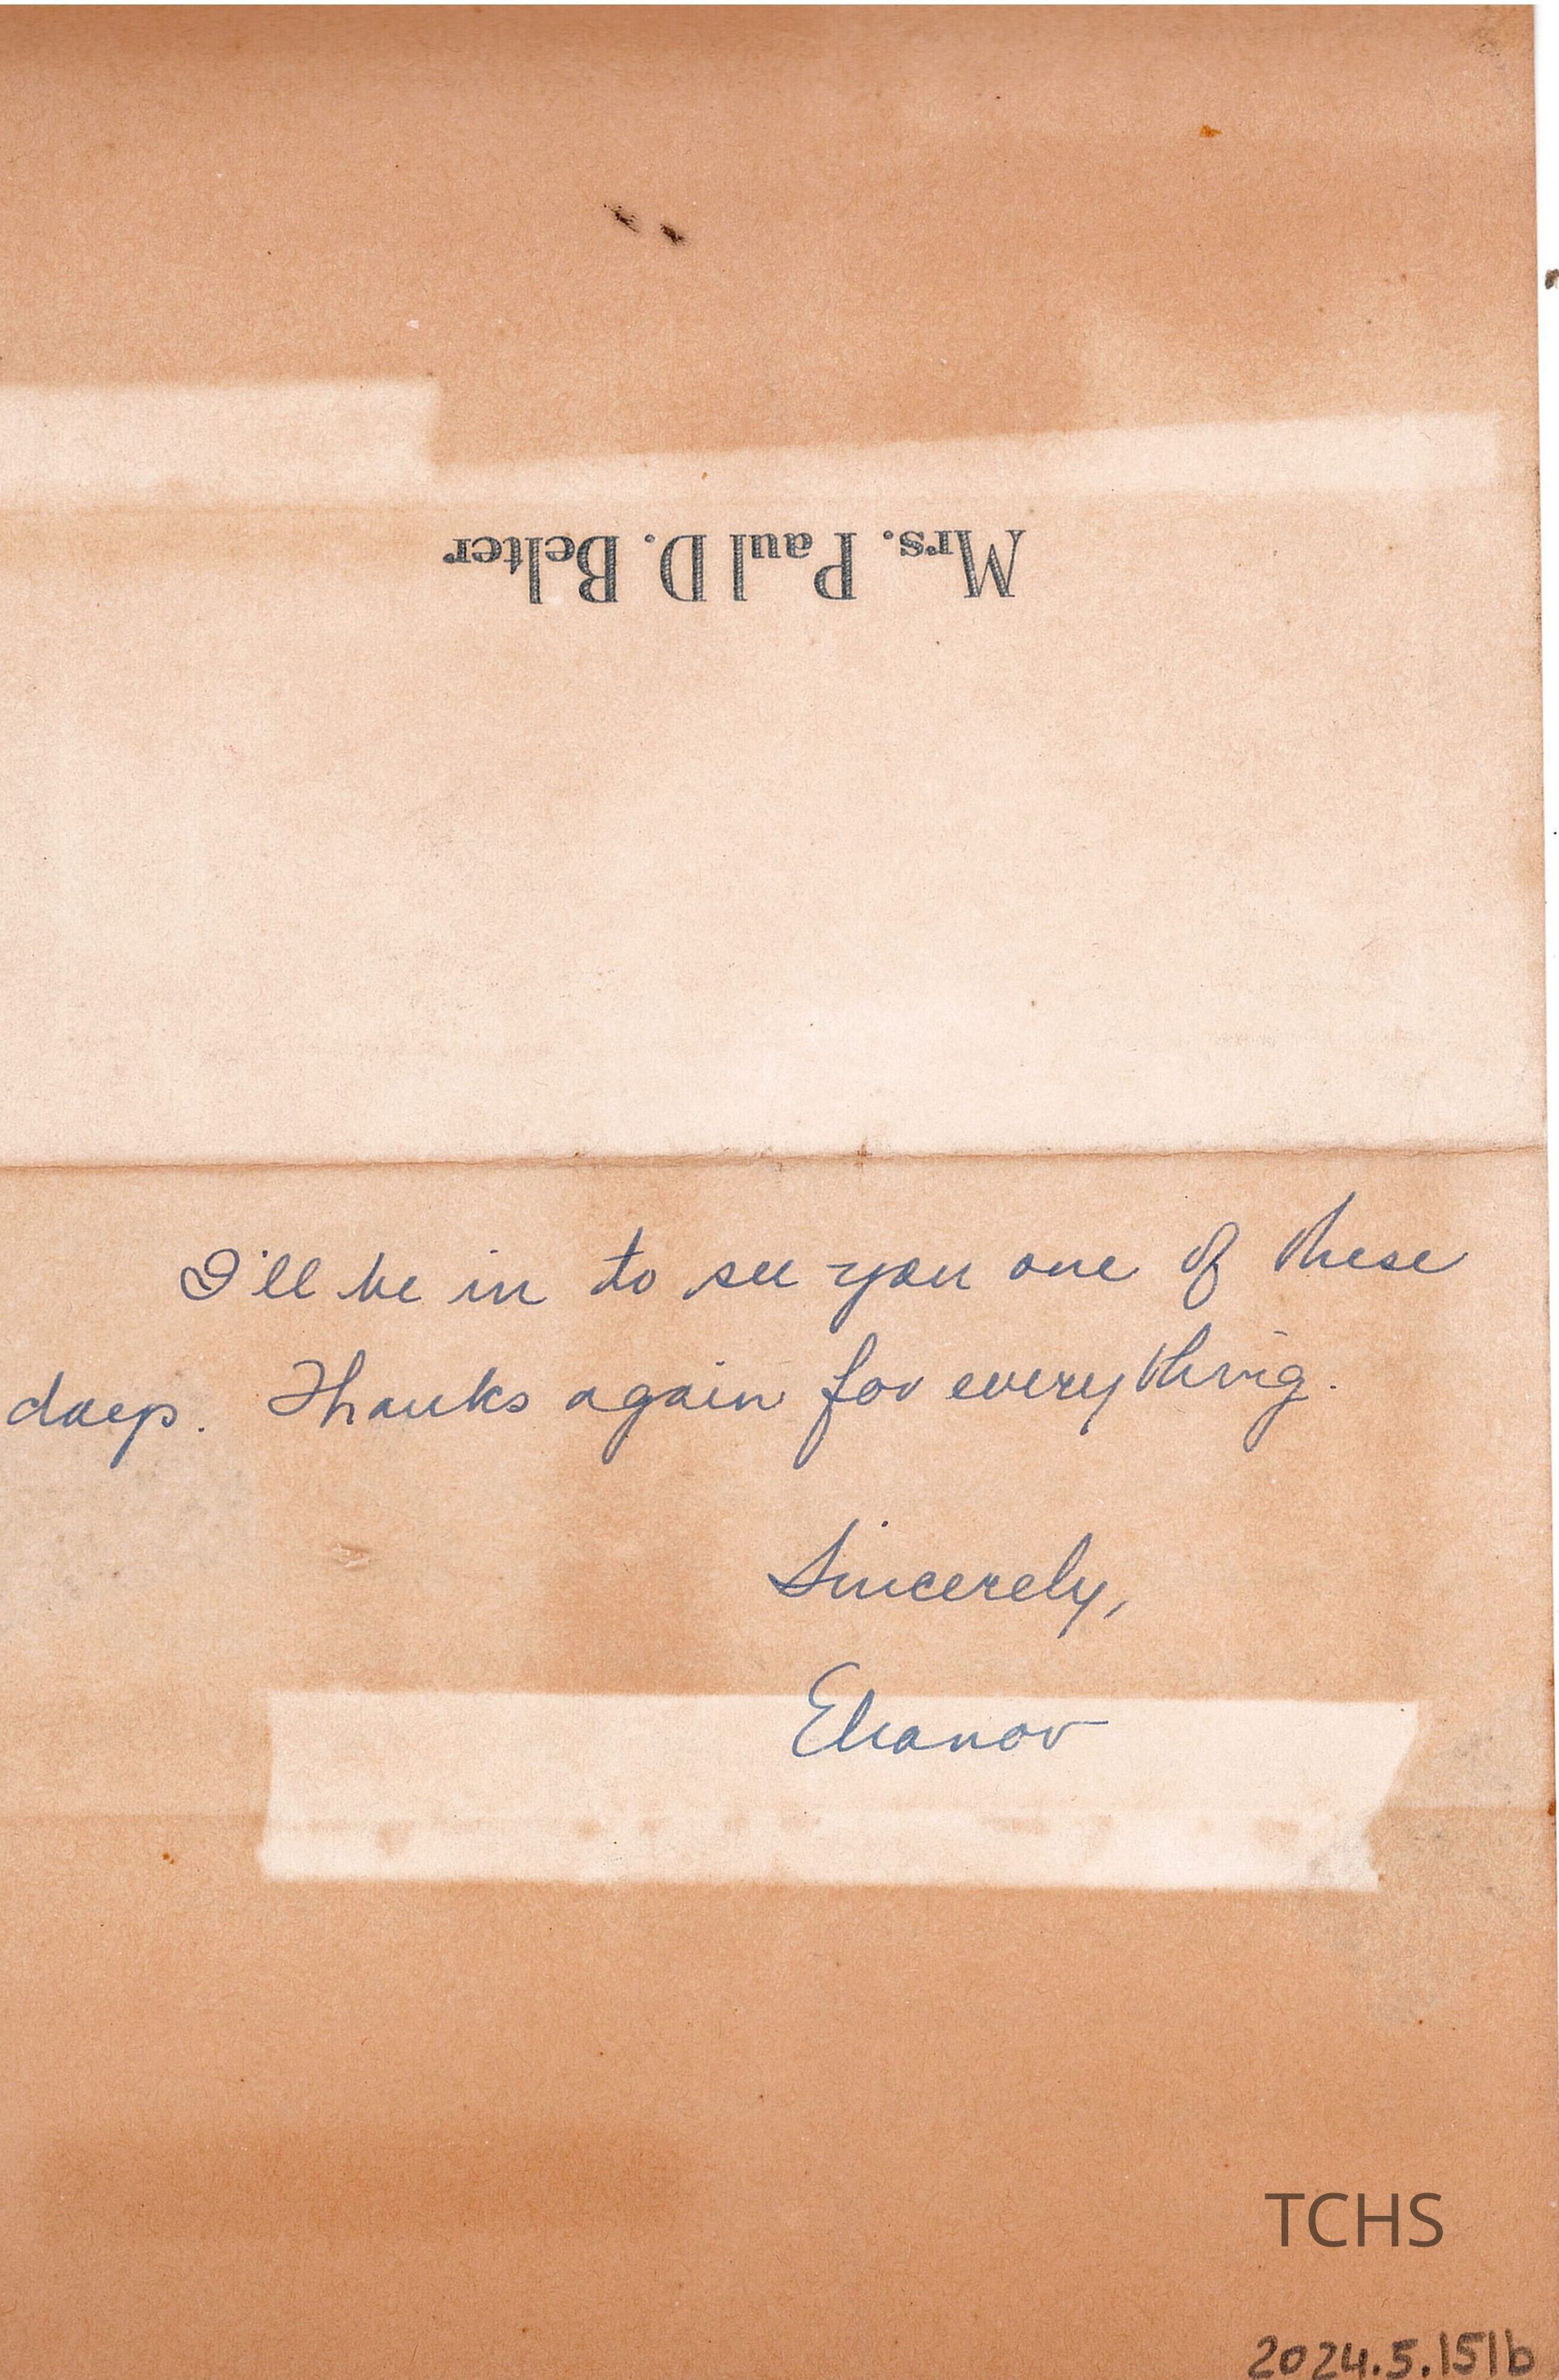 Mrs. Paul D. Belter
I'll be in to see you one of these
days. Thanks again for everything.
Sincerely,
Eleanor
TCHS
2024.5.151b